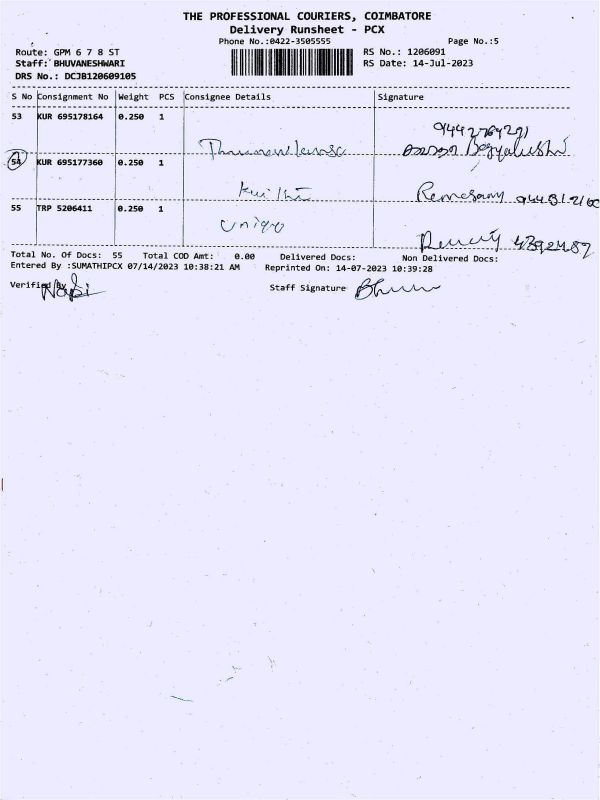 THE PROFESSIONAL COURIERS, COIMBATORE
Delivery Runsheet - PCX
Phone No.:0422-3505555 Page No.:5
Route: GPM 6 7 8 ST RS No.: 1206091
Staff: BHUVANESHWARI RS Date: 14-Jul-2023
DRS No.: DCJB120609105
S No Consignment No Weight PCS Consignee Details Signature
53 KUR 695178164 0.250 1
54 KUR 695177360 0.250 1
55 TRP 5206411 0.250 1
Total No. Of Docs: 55 Total COD Amt: 0.00 Delivered Docs: Non Delivered Docs:
Entered By :SUMATHIPCX 07/14/2023 10:38:21 AM Reprinted On: 14-07-2023 10:39:28
Verified By Staff Signature